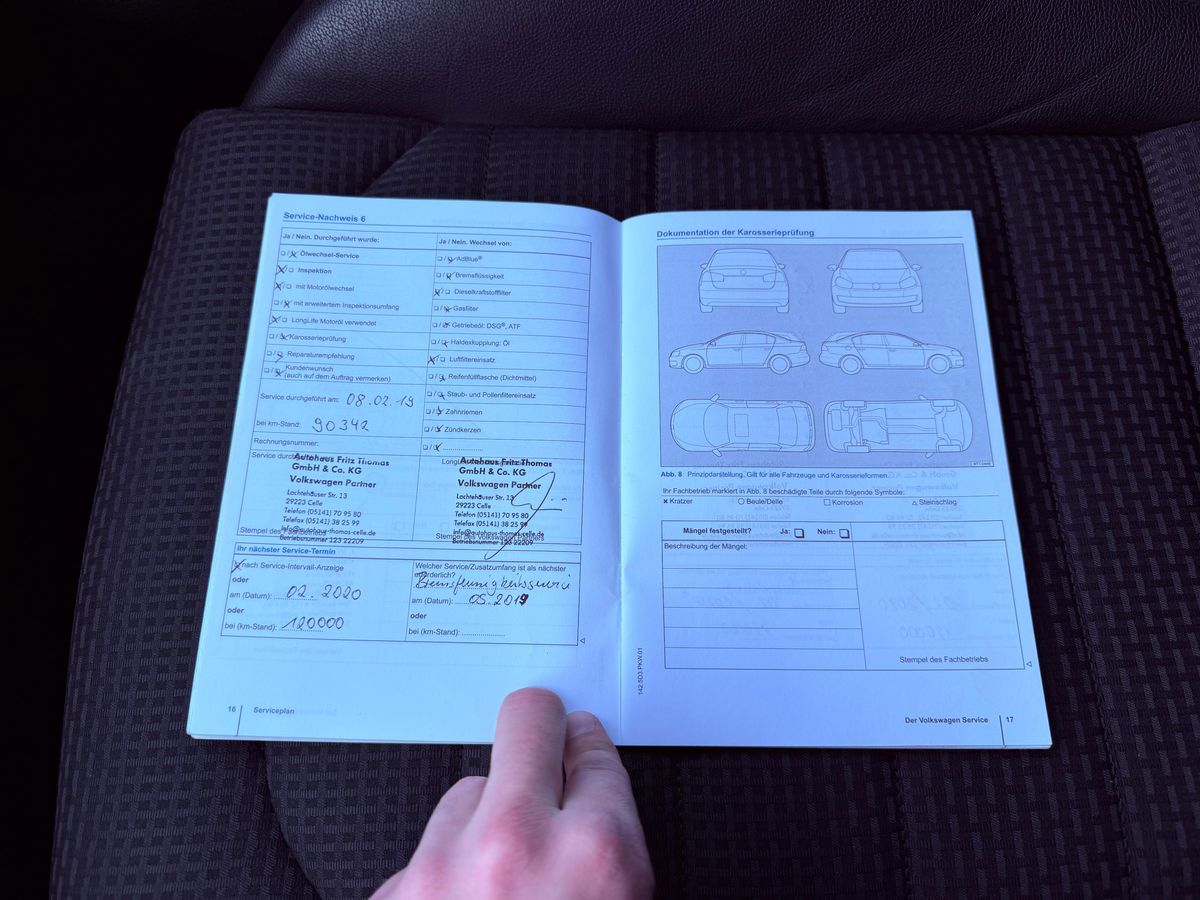 Service-Nachweis 6
Ja / Nein. Durchgeführt wurde:
Ölwechsel-Service
Inspektion
mit Motorölwechsel
mit erweitertem Inspektionsumfang
LongLife Motoröl verwendet
Karosserieprüfung
Reparaturempfehlung
Kundenwunsch
(auch auf dem Auftrag vermerken)
Service durchgeführt am: 08.02.19
bei km-Stand: 90342
Rechnungsnummer:
Service durchgeführt
Autohaus Fritz Thomas
GmbH & Co. KG
Volkswagen Partner
Lachtehäuser Str. 13
29223 Celle
Telefon (05141) 70 95 80
Telefax (05141) 38 25 99
info@autohaus-thomas-celle.de
Stempel des Fachbetriebs
Betriebsnummer 123 22209
Ja / Nein. Wechsel von:
AdBlue®
Bremsflüssigkeit
Dieselkraftstofffilter
Gasfilter
Getriebeöl: DSG®, ATF
Haldexkupplung: Öl
Luftfiltereinsatz
Reifenfüllflasche (Dichtmittel)
Staub- und Pollenfiltereinsatz
Zahnriemen
Zündkerzen
Autohaus Fritz Thomas
GmbH & Co. KG
Volkswagen Partner
Lachtehäuser Str. 13
29223 Celle
Telefon (05141) 70 95 80
Telefax (05141) 38 25 99
info@autohaus-thomas-celle.de
Stempel des Volkswagen Partners
Betriebsnummer 123 22209
Ihr nächster Service-Termin
nach Service-Intervall-Anzeige
oder
am (Datum): 02.2020
oder
bei (km-Stand): 120000
Welcher Service/Zusatzumfang ist als nächster
erforderlich?
am (Datum): 05.2019
oder
bei (km-Stand):
16 Serviceplan
Dokumentation der Karosserieprüfung
Abb. 8 Prinzipdarstellung. Gilt für alle Fahrzeuge und Karosserieformen.
Ihr Fachbetrieb markiert in Abb. 8 beschädigte Teile durch folgende Symbole:
× Kratzer ○ Beule/Delle □ Korrosion △ Steinschlag
Mängel festgestellt? Ja: Nein:
Beschreibung der Mängel:
Stempel des Fachbetriebs
142.5D3.PKW.01
Der Volkswagen Service 17